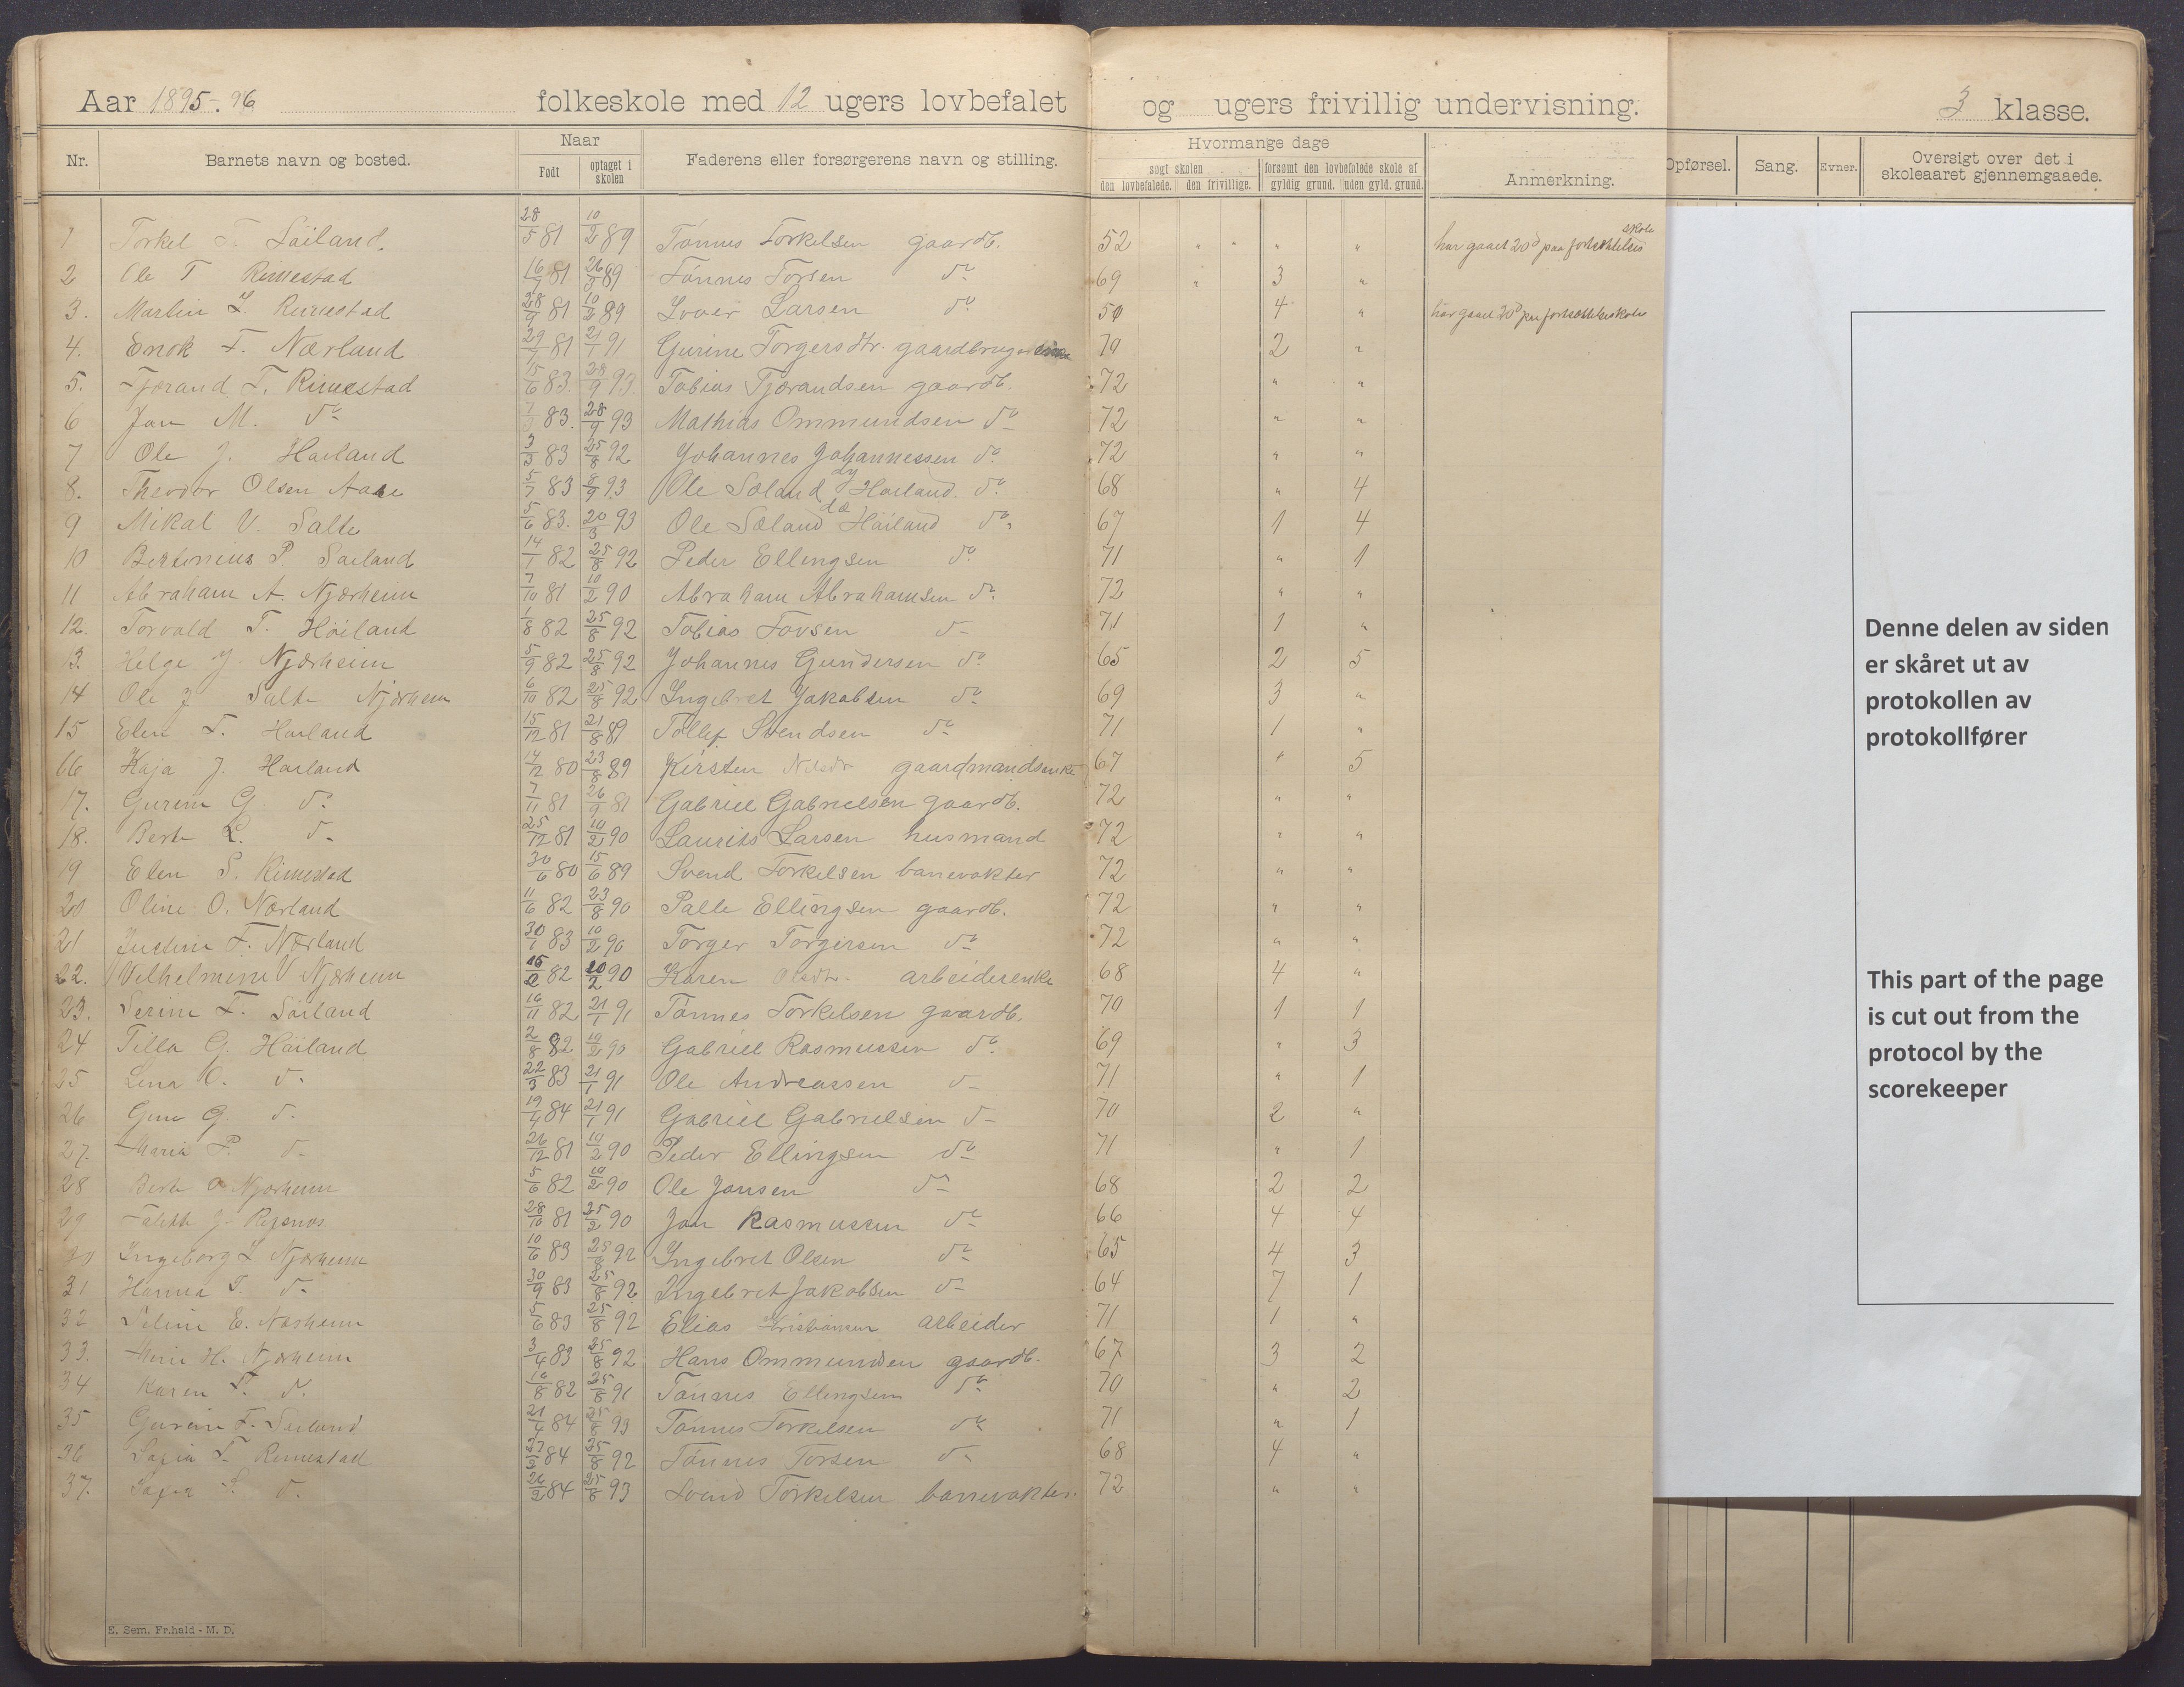 Aar 1895-96 folkeskole med 12 ugers lovbefalet og ugers frivillig undervisning. 3 klasse.
Nr. Barnets navn og bosted. Naar Født optaget i skolen Faderens eller forsørgerens navn og stilling. Hvormange dage søgt skolen den lovbefalede. den frivillige. forsømt den lovbefalede skole af gyldig grund. uden gyld. grund. Anmerkning. Opførsel. Sang. Evner. Oversigt over det i skoleaaret gjennemgaaede.
1 Torkel T. Söiland. 28/5 81 10/2 89 Tönnes Torkelsen gaardb. 52 " " " " har gaaet 20 d paa fortsættelses skole
2 Ole T Rimestad 16/7 81 26/9 89 Tönnes Torsen do 69 " 3 "
3. Martin I. Rimestad 28/9 81 10/2 89 Iver Larsen do 50 4 " har gaaet 20 d paa fortsættelseskole
4. Enok T. Nærland 29/7 81 21/1 91 Gurine Torgersdtr. 70 2 "
5. Tjærand T. Rimestad 15/6 83. 28/9 93. Tobias Tjærandsen gaardb. 72 " "
6 Jan M. do 83. 28/9 93 Mathias Ommundsen do 72 " "
7 Ole J. Haaland 83 25/8 92 Johannes Johannessen do 72 " "
8. Theodor Olsen 5/7 83 8/9 93 Ole Söland do 68 " 4
9 Mikal V. Salte 5/6 83. 20/3 93 Ole Sæland Höiland do 67 1 4
10 Bertinius P. Söiland 14/1 82 25/8 92 Peder Ellingsen do 71 " 1
11 Abraham A. Njærheim 7/10 81 10/2 90 Abraham Abrahamsen do 72 " "
12. Torvald T. Höiland 1/8 82 25/8 92 Tobias Tovsen d- 71 1 "
13. Helge J. Njærheim 5/9 82 25/8 92 Johannes Gundersen do 65 2 5
14 Ole J Salte Njærheim 6/10 82 25/8 92 Ingebret Jakobsen do 69 3 "
15 Elen T. Höiland 15/12 81 21/8 89 Tollef Svendsen do 71 1 "
16 Kaja J. Höiland 14/12 80 23/8 89 Kirsten Nilsdr gaardmandsenke 67 " 5
17. Gurine G. do 7/11 81 26/9 81 Gabriel Gabrielsen gaardb. 72 " "
18. Berte L. d- 25/12 81 10/2 90 Laurits Larsen husmand 72 " "
19 Elen S. Rimestad 30/6 80 15/6 89 Svend Torkelsen banevakter 72 " "
20 Oline O. Nærland 11/6 82 23/8 90 Palle Ellingsen gaardb. 72 " "
21 Justine T. Nærland 30/1 83 10/2 90 Torger Torgersen do 72 " "
22. Vilhelmine V Njærheim 82 10/2 90 Karen Olsdtr. arbeiderenke 68 4 "
23. Serine T. Söiland 16/11 82 21/1 91 Tönnes Torkelsen gaardb. 70 1 1
24 Tilla G. Höiland 2/8 82 10/2 90 Gabriel Rasmussen do 69 " 3
25 Lina O. d- 22/3 83 21/1 91 Ole Andreassen d- 71 " 1
26 G. d. 19/4 84 21/1 91 Gabriel Gabrielsen d- 70 2 "
27. Maria P. d- 26/12 81 10/2 90 Peder Ellingsen do 71 " 1
28 Berte O Njærheim 5/6 82 10/2 90 Ole Jansen d- 68 2 2
29 J. Risnes 28/10 81 25/2 90 Jan Rasmussen do 66 4 4
30 Ingeborg I. Njærheim 10/6 83 25/8 92 Ingebret Olsen do 65 4 3
31 Hanna I. d- 30/9 83 25/8 92 Ingebret Jakobsen d- 64 7 1
32 Seline E. Nærheim 5/6 83 25/8 92 Elias Kristiansen arbeider 71 1 "
33. H. Njærheim 3/4 83 25/8 92 Hans Ommundsen gaardb. 67 3 2
34 Karen T. d. 16/8 82 25/8 91 Tönnes Ellingsen do 70 " 2
35 Gurine T. Söiland 21/4 84 25/8 93 Tönnes Torkelsen do 71 " 1
36 T. Rimestad 84 25/8 92 Tönnes Torsen d- 68 4 "
37. S. d. 26/2 84 25/8 93 Svend Torkelsen banevakter. 72 " "
Denne delen av siden
er skåret ut av
protokollen av
protokollfører
This part of the page
is cut out from the
protocol by the
scorekeeper
E. Sem, Fr.hald - M. D.